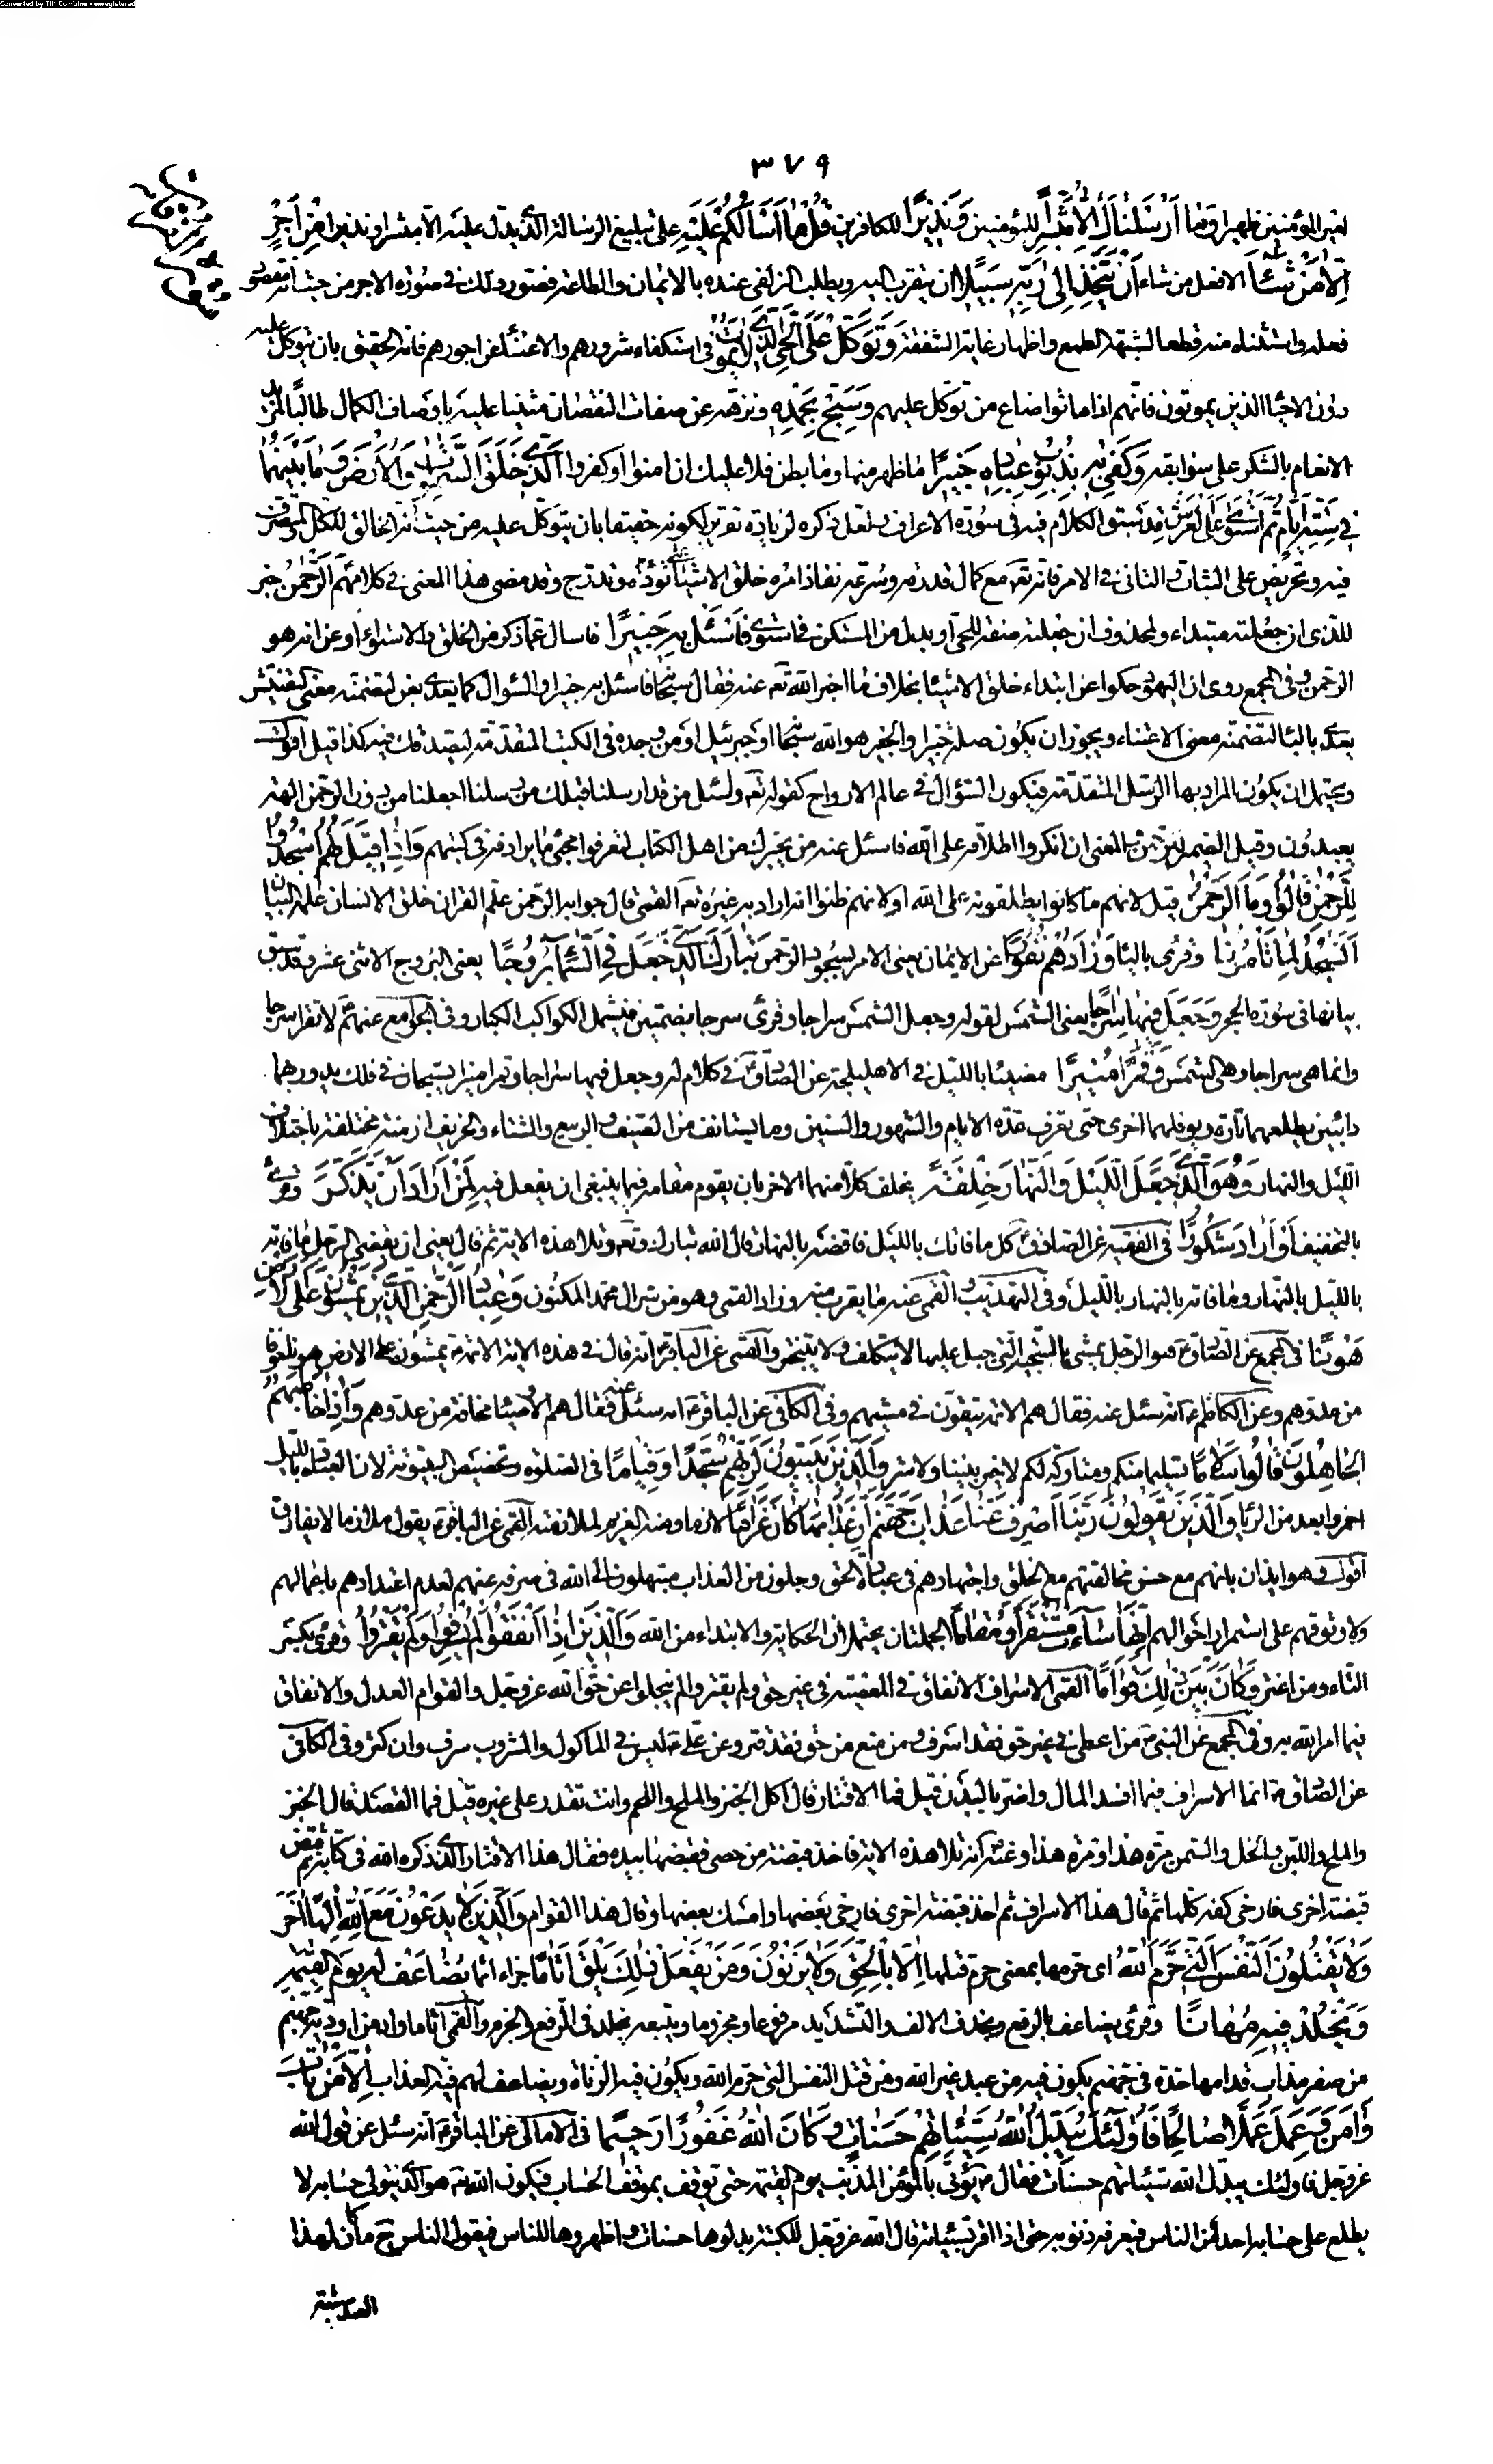 Converted by Tiff Combine - unregistered
٣٧٩
لغير المؤمنين ظهيرا وَمَا أَرْسَلْنَاكَ إِلَّا مُبَشِّرًا للمؤمنين وَنَذِيرًا للكافرين قُلْ مَا أَسْأَلُكُمْ عَلَيْهِ على تبليغ الرسالة الذي يدل عليه الا مبشرا ونذيرا مِنْ أَجْرٍ
إِلَّا مَنْ شَاءَ الا فعل من شاء أَنْ يَتَّخِذَ إِلَىٰ رَبِّهِ سَبِيلًا ان يتقرب اليه ويطلب الزلفى عنده بالايمان والطاعة فصور ذلك في صورة الاجر من حيث انه مقصود
فعله واستثناه منه قطعا لشبهة الطمع واظهارا لغاية الشفقة وَتَوَكَّلْ عَلَى الْحَيِّ الَّذِي لَا يَمُوتُ في استكفاء شرورهم والاغناء عن اجورهم فانه الحقيق بان يتوكل عليه
دون الاحياء الذين يموتون فانهم اذا ماتوا ضاع من توكل عليهم وَسَبِّحْ بِحَمْدِهِ ونزهه عن صفات النقصان مثنيا عليه باوصاف الكمال طالبا لمزيد
الانعام بالشكر على سوابقه وَكَفَىٰ بِهِ بِذُنُوبِ عِبَادِهِ خَبِيرًا ما ظهر منها وما بطن فلا عليك ان امنوا او كفروا الَّذِي خَلَقَ السَّمَوَاتِ وَالْأَرْضَ وَمَا بَيْنَهُمَا
فِي سِتَّةِ أَيَّامٍ ثُمَّ اسْتَوَىٰ عَلَى الْعَرْشِ قد سبق الكلام فيه في سورة الاعراف ولعل ذكره لزيادة تقرير لكونه حقيقا بان يتوكل عليه من حيث انه الخالق للكل والمتصرف
فيه وتحريض على الثبات والتاني في الامر فانه تع مع كمال قدرته وسرعة نفاذ امره خلق الاشياء على تؤدة وتدرج وقد مضى هذا المعنى في كلامهم الرَّحْمَنُ خبر
للذي ان جعلته مبتداء ولمحذوف ان جعلته صفة للحي او بدل من المستكن في استوى فَاسْئَلْ بِهِ خَبِيرًا فاسال عما ذكر من الخلق والاستواء او عن انه هو
الرحمن وفي المجمع روى ان اليهود حكوا عن ابتداء خلق الاشياء بخلاف ما اخبر الله تع عنه فقال سبحانه فاسئل به خبيرا والسؤال كما يعدى بعن لتضمنه معنى التفتيش
يعدى بالباء لتضمنه معنى الاعتناء ويجوز ان يكون صلة خبيرا والخبير هو الله سبحانه او جبرئيل او من وجده في الكتب المتقدمة ليصدقك فيه كذا قيل اقول
ويحتمل ان يكون المراد بها الرسل المتقدمة فيكون السؤال في عالم الارواح كقوله تع واسئل من قد ارسلنا قبلك من رسلنا اجعلنا من دون الرحمن الهة
يعبدون وقيل الضمير للرحمن والمعنى ان انكروا اطلاقه على الله فاسئل عنه من يخبرك من اهل الكتاب ليعرفوا مجئ ما يرادفه في كتبهم وَإِذَا قِيلَ لَهُمُ اسْجُدُوا
لِلرَّحْمَنِ قَالُوا وَمَا الرَّحْمَنُ قيل لانهم ما كانوا يطلقونه على الله او لانهم ظنوا انه اراد به غيره تع القمي قال جوابه الرحمن علم القران خلق الانسان علمه البيان
أَنَسْجُدُ لِمَا تَأْمُرُنَا وقرئ بالياء وَزَادَهُمْ نُفُورًا عن الايمان يعنى الامر بسجود الرحمن تَبَارَكَ الَّذِي جَعَلَ فِي السَّمَاءِ بُرُوجًا يعنى البروج الاثنى عشر وقد سبق
بيانها في سورة الحجر وَجَعَلَ فِيهَا سِرَاجًا يعنى الشمس لقوله وجعل الشمس سراجا وقرئ سرجا بضمتين فيشمل الكواكب الكبار وفي الجوامع عنهم ع لا تقرا سرجا
وانما هى سراجا وهى الشمس وَقَمَرًا مُنِيرًا مضيئا بالليل في الاهليلجة عن الصادق ع في كلام له وجعل فيها سراجا وقمرا منيرا يسبحان في فلك يدور بهما
دائبين يطلعهما تارة ويؤفلهما اخرى حتى تعرف عدة الايام والشهور والسنين وما يستانف من الصيف والربيع والشتاء والخريف ازمنة مختلفة باختلاف
الليل والنهار وَهُوَ الَّذِي جَعَلَ اللَّيْلَ وَالنَّهَارَ خِلْفَةً يخلف كلا منهما الاخر بان يقوم مقامه فيما ينبغى ان يفعل فيه لِمَنْ أَرَادَ أَنْ يَذَّكَّرَ وقرئ
بالتخفيف أَوْ أَرَادَ شُكُورًا في الفقيه عن الصادق ع كل ما فاتك بالليل فاقضه بالنهار قال الله تبارك وتع وتلا هذه الاية ثم قال يعنى ان يقضى الرجل ما فاته
بالليل بالنهار وما فاته بالنهار بالليل وفي التهذيب والقمي عنه ما يقرب منه وزاد القمي وهو من سر ال محمد المكنون وَعِبَادُ الرَّحْمَنِ الَّذِينَ يَمْشُونَ عَلَى الْأَرْضِ
هَوْنًا في المجمع عن الصادق ع هو الرجل يمشى بالسجية التى جبل عليها لا يتكلف ولا يتبختر والقمي عن الباقر ع انه قال في هذه الاية الائمة ع يمشون على الارض هونا خوفا
من عدوهم وعن الكاظم ع انه سئل عنه فقال هم الائمة يتقون في مشيهم وفي الكافي عن الباقر ع انه سئل عنه فقال هم الاوصياء مخافة من عدوهم وَإِذَا خَاطَبَهُمُ
الْجَاهِلُونَ قَالُوا سَلَامًا تسليما منكم ومتاركة لكم لا خير بيننا ولا شر وَالَّذِينَ يَبِيتُونَ لِرَبِّهِمْ سُجَّدًا وَقِيَامًا في الصلوة وتخصيص البيتوتة لان العبادة بالليل
احمز وابعد من الريا وَالَّذِينَ يَقُولُونَ رَبَّنَا اصْرِفْ عَنَّا عَذَابَ جَهَنَّمَ إِنَّ عَذَابَهَا كَانَ غَرَامًا لازما ومنه الغريم لملازمته القمي عن الباقر ع يقول ملازما لا يفارق
اقول وهو ايذان بانهم مع حسن مخالقتهم مع الخلق واجتهادهم في عبادة الحق وجلون من العذاب مبتهلون الى الله في صرفه عنهم لعدم اعتدادهم باعمالهم
ولا وثوقهم على استمرار احوالهم إِنَّهَا سَاءَتْ مُسْتَقَرًّا وَمُقَامًا الجملتان يحتملان الحكاية والابتداء من الله وَالَّذِينَ إِذَا أَنْفَقُوا لَمْ يُسْرِفُوا وَلَمْ يَقْتُرُوا وقرئ بكسر
التاء ومن اقتر وَكَانَ بَيْنَ ذَلِكَ قَوَامًا القمي الاسراف الانفاق في المعصية في غير حق ولم يقتروا لم يبخلوا عن حق الله عز وجل والقوام العدل والانفاق
فيما امر الله به وفي المجمع عن النبي ص من اعطى في غير حق فقد اسرف ومن منع من حق فقد قتر وعن علي ع ليس في الماكول والمشروب سرف وان كثر وفي الكافي
عن الصادق ع انما الاسراف فيما افسد المال واضر بالبدن قيل فما الاقتار قال اكل الخبز والملح وانت تقدر على غيره قيل فما القصد قال الخبز
والملح واللبن والخل والسمن مرة هذا ومرة هذا وعنه ع انه تلا هذه الاية فاخذ قبضة من حصى فقبضها بيده فقال هذا الاقتار الذي ذكره الله في كتابه ثم قبض
قبضة اخرى فارخى كفه كلها ثم قال هذا الاسراف ثم اخذ قبضة اخرى فارخى بعضها وامسك بعضها وقال هذا القوام وَالَّذِينَ لَا يَدْعُونَ مَعَ اللَّهِ إِلَهًا آخَرَ
وَلَا يَقْتُلُونَ النَّفْسَ الَّتِي حَرَّمَ اللَّهُ اى حرمها بمعنى حرم قتلها إِلَّا بِالْحَقِّ وَلَا يَزْنُونَ وَمَنْ يَفْعَلْ ذَلِكَ يَلْقَ أَثَامًا جزاء اثم يُضَاعَفْ لَهُ الْعَذَابُ يَوْمَ الْقِيَمَةِ
وَيَخْلُدْ فِيهِ مُهَانًا وقرئ يضاعف بالرفع وبحذف الالف والتشديد مرفوعا ومجزوما ويتبعه يخلد في الرفع والجزم والقمي اثاما واد من اودية جهنم
من صفر مذاب قدامها خدة في جهنم يكون فيه من عبد غير الله ومن قتل النفس التى حرم الله ويكون فيه الزناة ويضاعف لهم فيه العذاب إِلَّا مَنْ تَابَ
وَآمَنَ وَعَمِلَ عَمَلًا صَالِحًا فَأُولَئِكَ يُبَدِّلُ اللَّهُ سَيِّئَاتِهِمْ حَسَنَاتٍ وَكَانَ اللَّهُ غَفُورًا رَحِيمًا في الامالى عن الباقر ع انه سئل عن قول الله
عز وجل فاولئك يبدل الله سيئاتهم حسنات فقال ع يؤتى بالمؤمن المذنب يوم القيمة حتى يوقف بموقف الحساب فيكون الله تع هو الذى يتولى حسابه لا
يطلع على حسابه احدا من الناس فيعرفه ذنوبه حتى اذا اقر بسيئاته قال الله عز وجل للكتبة بدلوها حسنات واظهروها للناس فيقول الناس ح ما كان لهذا
العبد سيئة